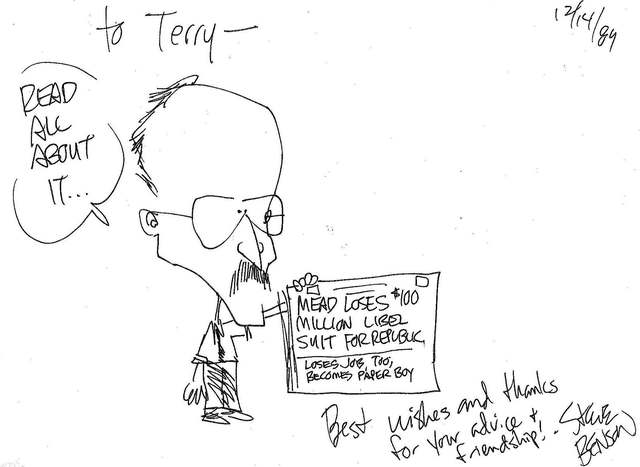 to Terry—
12/14/89
READ
ALL
ABOUT
IT...
MEAD LOSES $100
MILLION LIBEL
SUIT FOR REPUBLIC
LOSES JOB, TOO;
BECOMES PAPER BOY
Best wishes and thanks
for your advice +
friendship! -
STEVE
BENSON